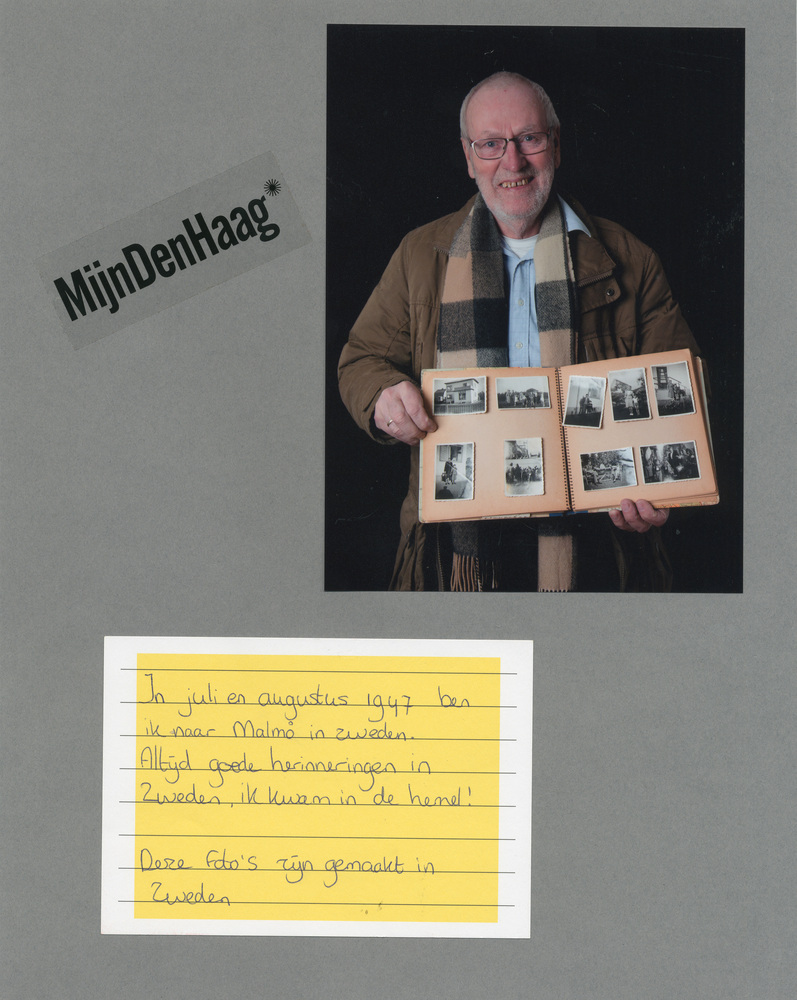 MijnDenHaag
In juli en augustus 1947 ben
ik naar Malmö in zweden.
Altijd goede herinneringen in
Zweden, ik kwam in de hemel!
Deze foto's zijn gemaakt in
Zweden